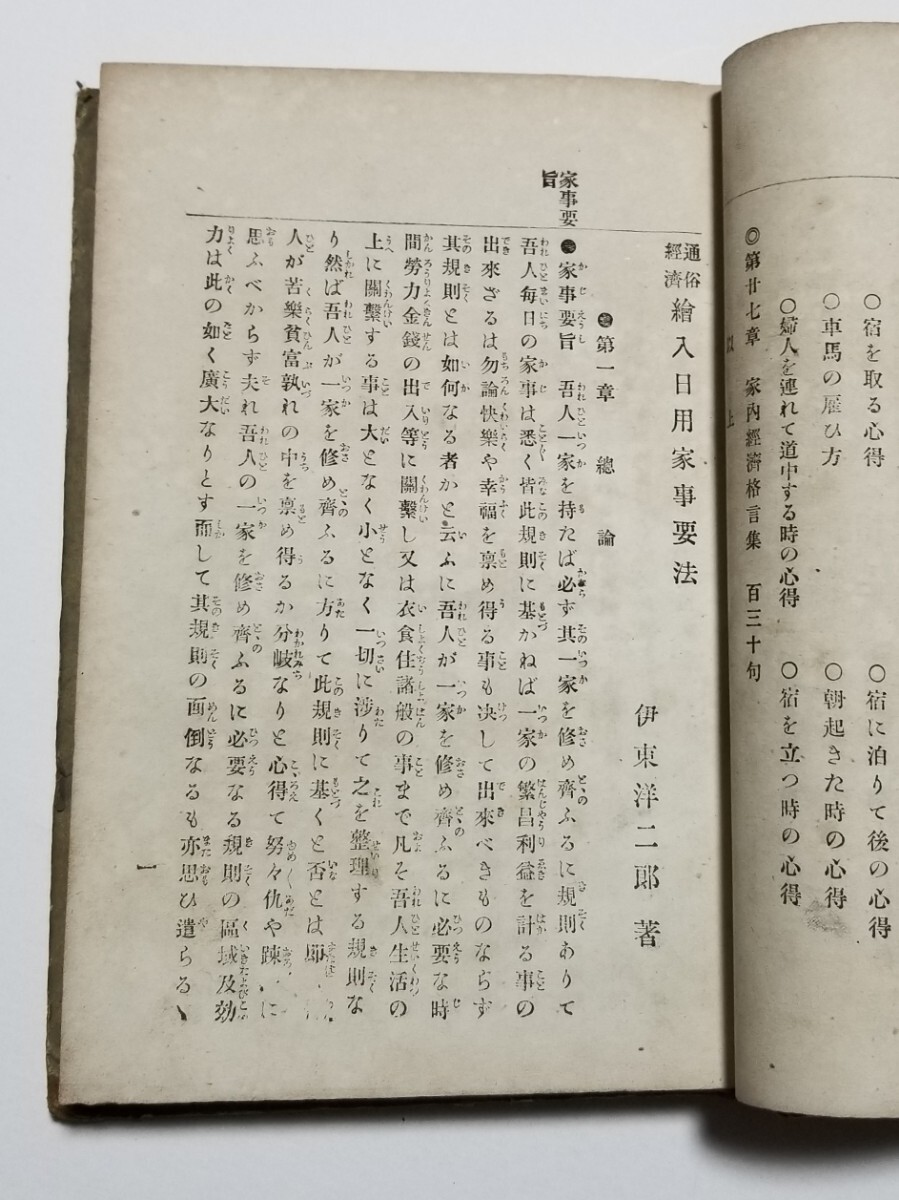 ○宿を取る心得
○宿に泊りて後の心得
○車馬の雇ひ方
○朝起きた時の心得
○婦人を連れて道中する時の心得
○宿を立つ時の心得
◎第廿七章 家內經濟格言集 百三十句
以上
家事要旨
通俗經濟 繪入日用家事要法
伊東洋二郞著
第一章 總論
●家事要旨 吾人一家を持たば必ず其一家を修め齊ふるに規則ありて
吾人每日の家事は悉く皆此規則に基かねば一家の繁昌利益を計る事の
出來ざるは勿論快樂や幸福を稟め得る事も決して出來べきものならず
其規則とは如何なる者かと云ふに吾人が一家を修め齊ふるに必要な時
間勞力金錢の出入等に關繫し又は衣食住諸般の事まで凡そ吾人生活の
上に關繫する事は大となく小となく一切に涉りて之を整理する規則な
り然ば吾人が一家を修め齊ふるに方りて此規則に基くと否とは卽
人が苦樂貧富孰れの中を稟め得るか分岐なりと心得て努々仇や踈に
思ふべからず夫れ吾人の一家を修め齊ふるに必要なる規則の區域及効
力は此の如く廣大なりとす而して其規則の面倒なるも亦思ひ遣らるヽ
一